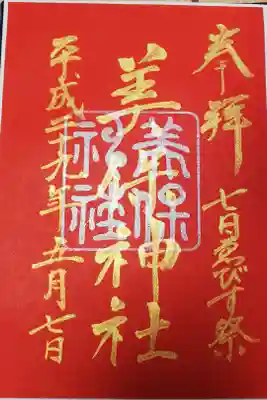 奉拝
七日えびす祭
美保神社
美保
神社
平成二十九年 五月七日